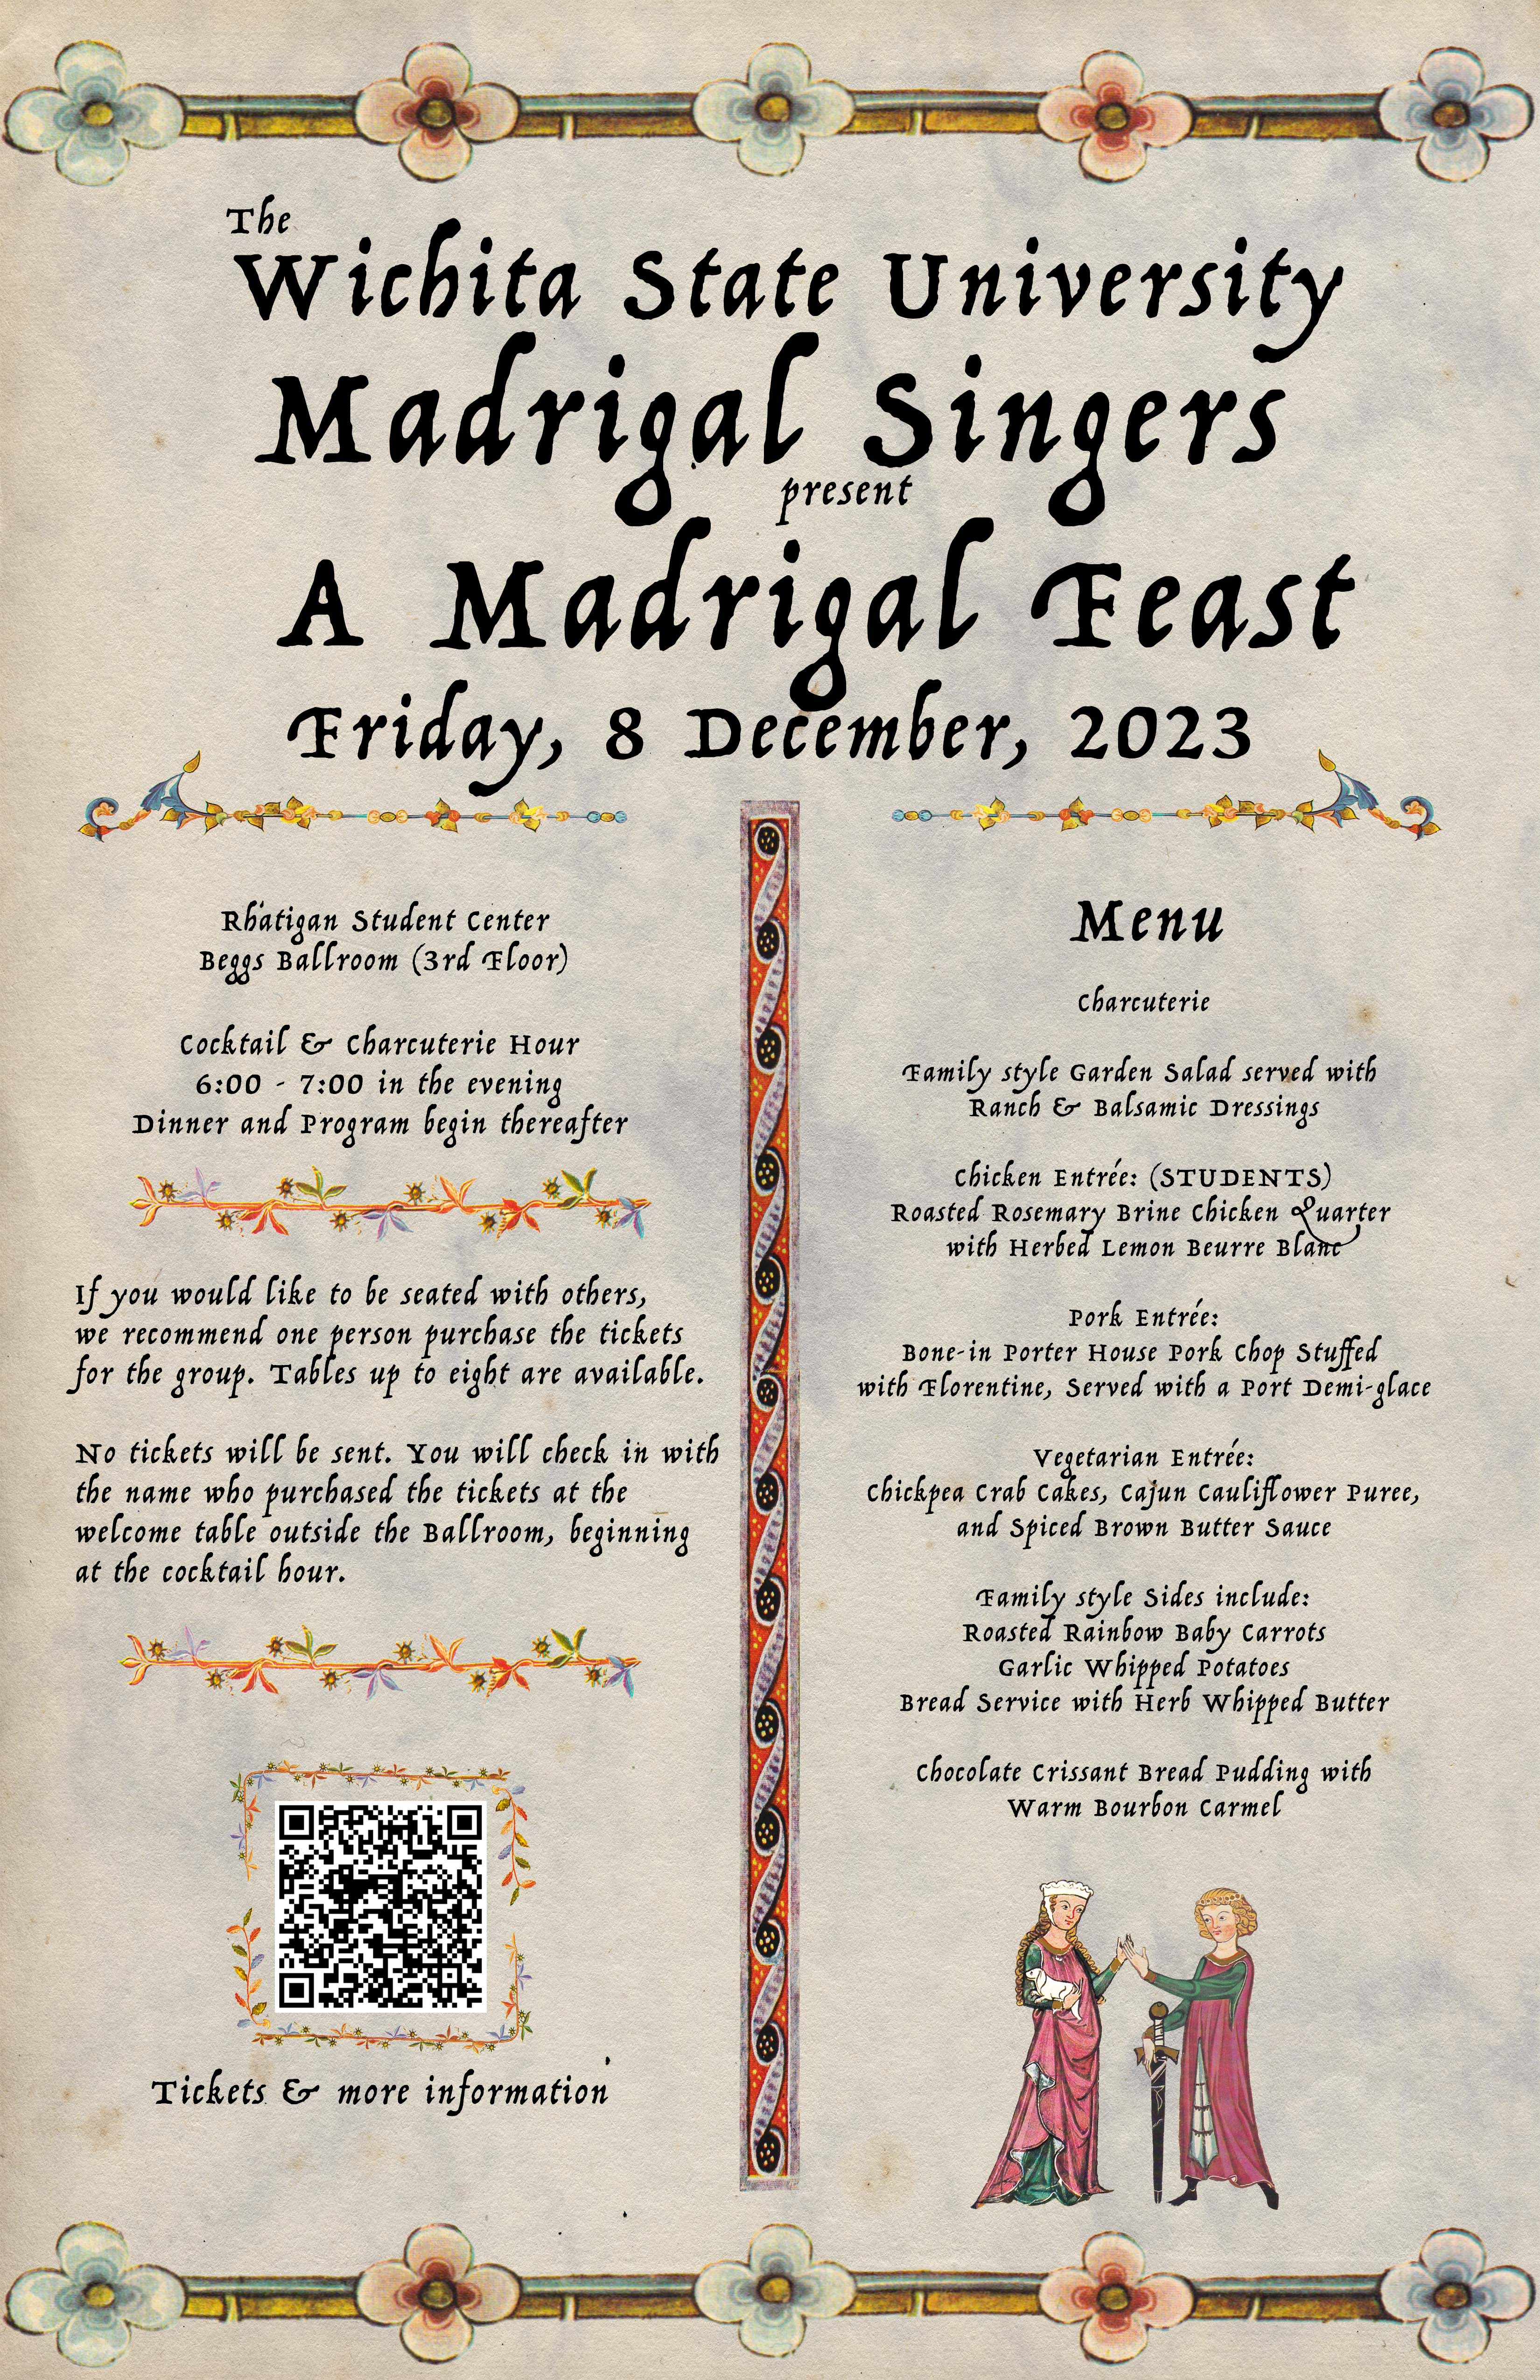 The
Wichita State University
Madrigal Singers
present
A Madrigal Feast
Friday, 8 December, 2023
Rhatigan Student Center
Beggs Ballroom (3rd Floor)
Cocktail & Charcuterie Hour
6:00 - 7:00 in the evening
Dinner and Program begin thereafter
If you would like to be seated with others,
we recommend one person purchase the tickets
for the group. Tables up to eight are available.
No tickets will be sent. You will check in with
the name who purchased the tickets at the
welcome table outside the Ballroom, beginning
at the cocktail hour.
Tickets & more information
Menu
Charcuterie
Family style Garden Salad served with
Ranch & Balsamic Dressings
Chicken Entrée: (STUDENTS)
Roasted Rosemary Brine Chicken Quarter
with Herbed Lemon Beurre Blanc
Pork Entrée:
Bone-in Porter House Pork Chop Stuffed
with Florentine, Served with a Port Demi-glace
Vegetarian Entrée:
Chickpea Crab Cakes, Cajun Cauliflower Puree,
and Spiced Brown Butter Sauce
Family style Sides include:
Roasted Rainbow Baby Carrots
Garlic Whipped Potatoes
Bread Service with Herb Whipped Butter
Chocolate Crissant Bread Pudding with
Warm Bourbon Carmel